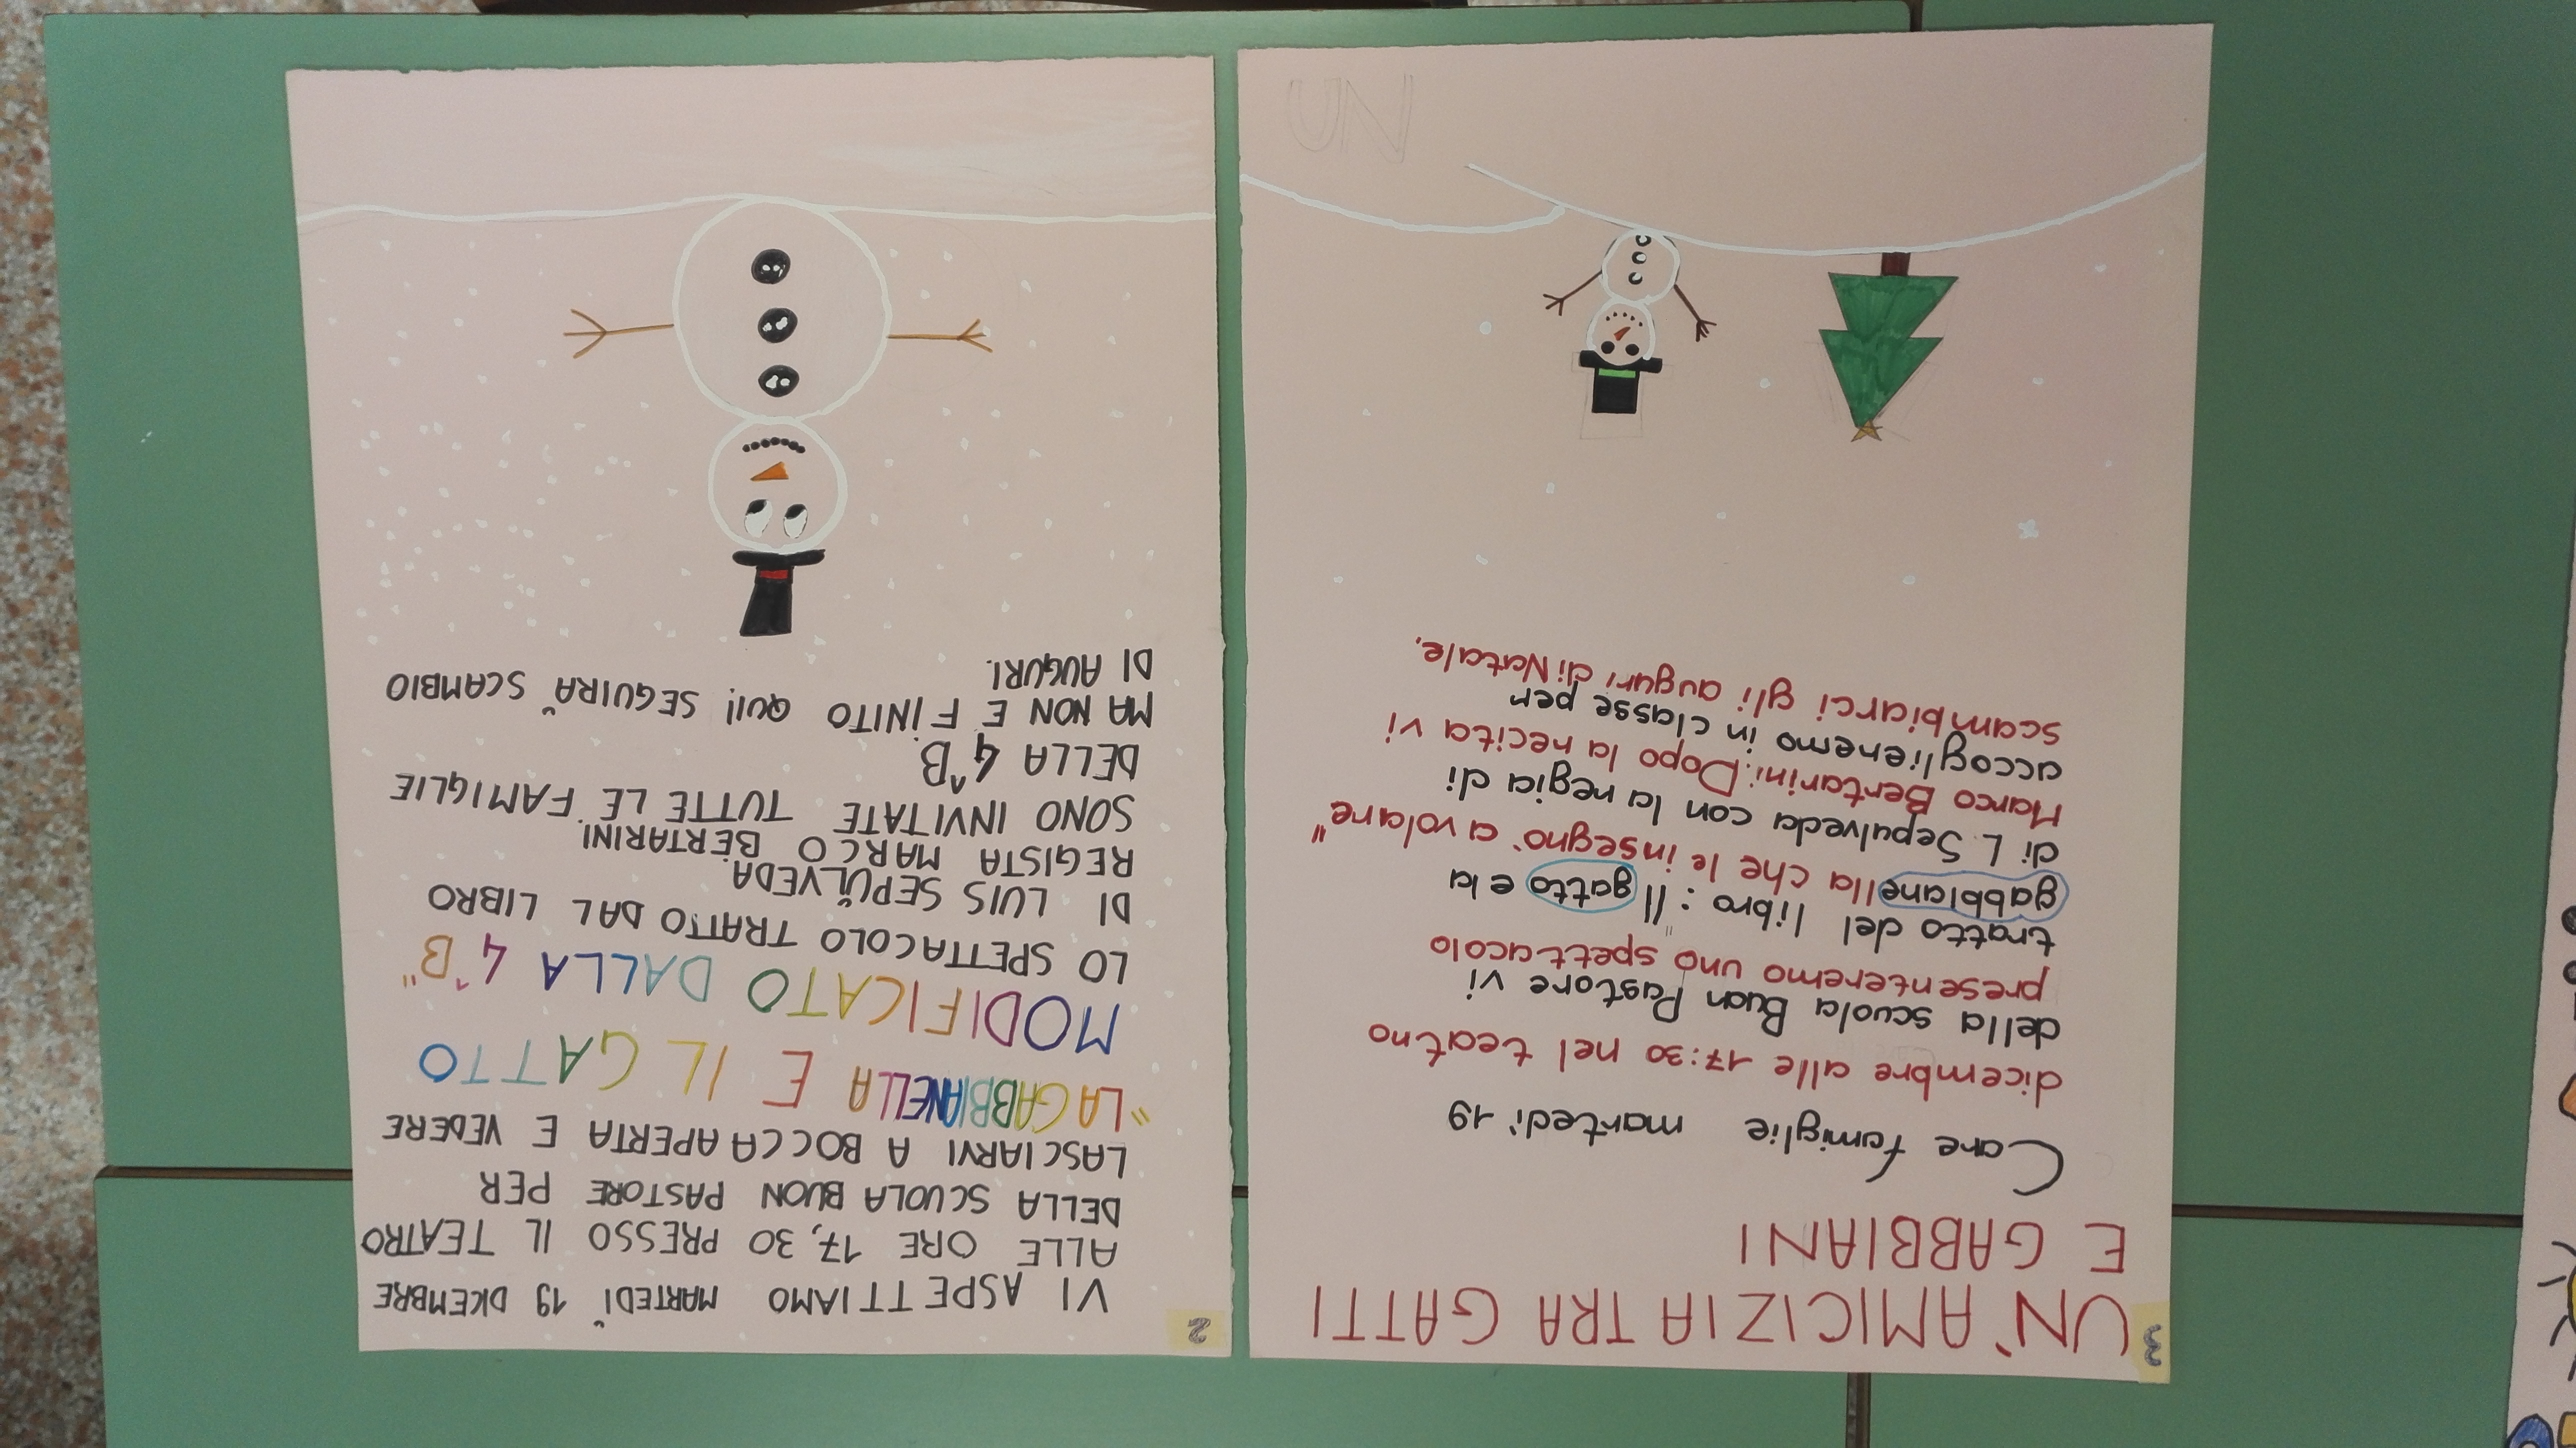 3
UN' AMICIZIA TRA GATTI
E GABBIANI
Care famiglie martedi' 19
dicembre alle 17:30 nel teatro
della scuola Buon Pastore vi
presenteremo uno spettacolo
tratto del libro: "Il gatto e la
gabbianella che le insegno' a volare"
di L. Sepulveda con la regia di
Marco Bertarini. Dopo la recita vi
accoglieremo in classe per
scambiarci gli auguri di Natale.
UN
2
VI ASPETTIAMO MARTEDI' 19 DICEMBRE
ALLE ORE 17,30 PRESSO IL TEATRO
DELLA SCUOLA BUON PASTORE PER
LASCIARVI A BOCCA APERTA E VEDERE
"LA GABBIANELLA E IL GATTO
MODIFICATO DALLA 4^B"
LO SPETTACOLO TRATTO DAL LIBRO
DI LUIS SEPÙLVEDA
REGISTA MARCO BERTARINI.
SONO INVITATE TUTTE LE FAMIGLIE
DELLA 4^B.
MA NON E FINITO QUI! SEGUIRA' SCAMBIO
DI AUGURI.